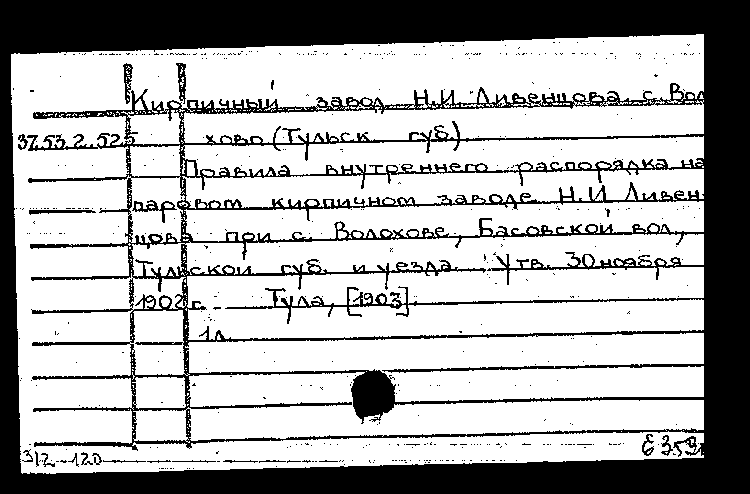 Кирпичный завод Н.И. Ливенцова. с. Вол
37.53.2.525 хово (Тульск. губ.).
Правила внутреннего распорядка на
паровом кирпичном заводе Н.И. Ливен-
цова при с. Волохове, Басовской вол.,
Тульской губ. и уезда. Утв. 30 ноября
1902 г. Тула, [1903].
1 л.
312-120